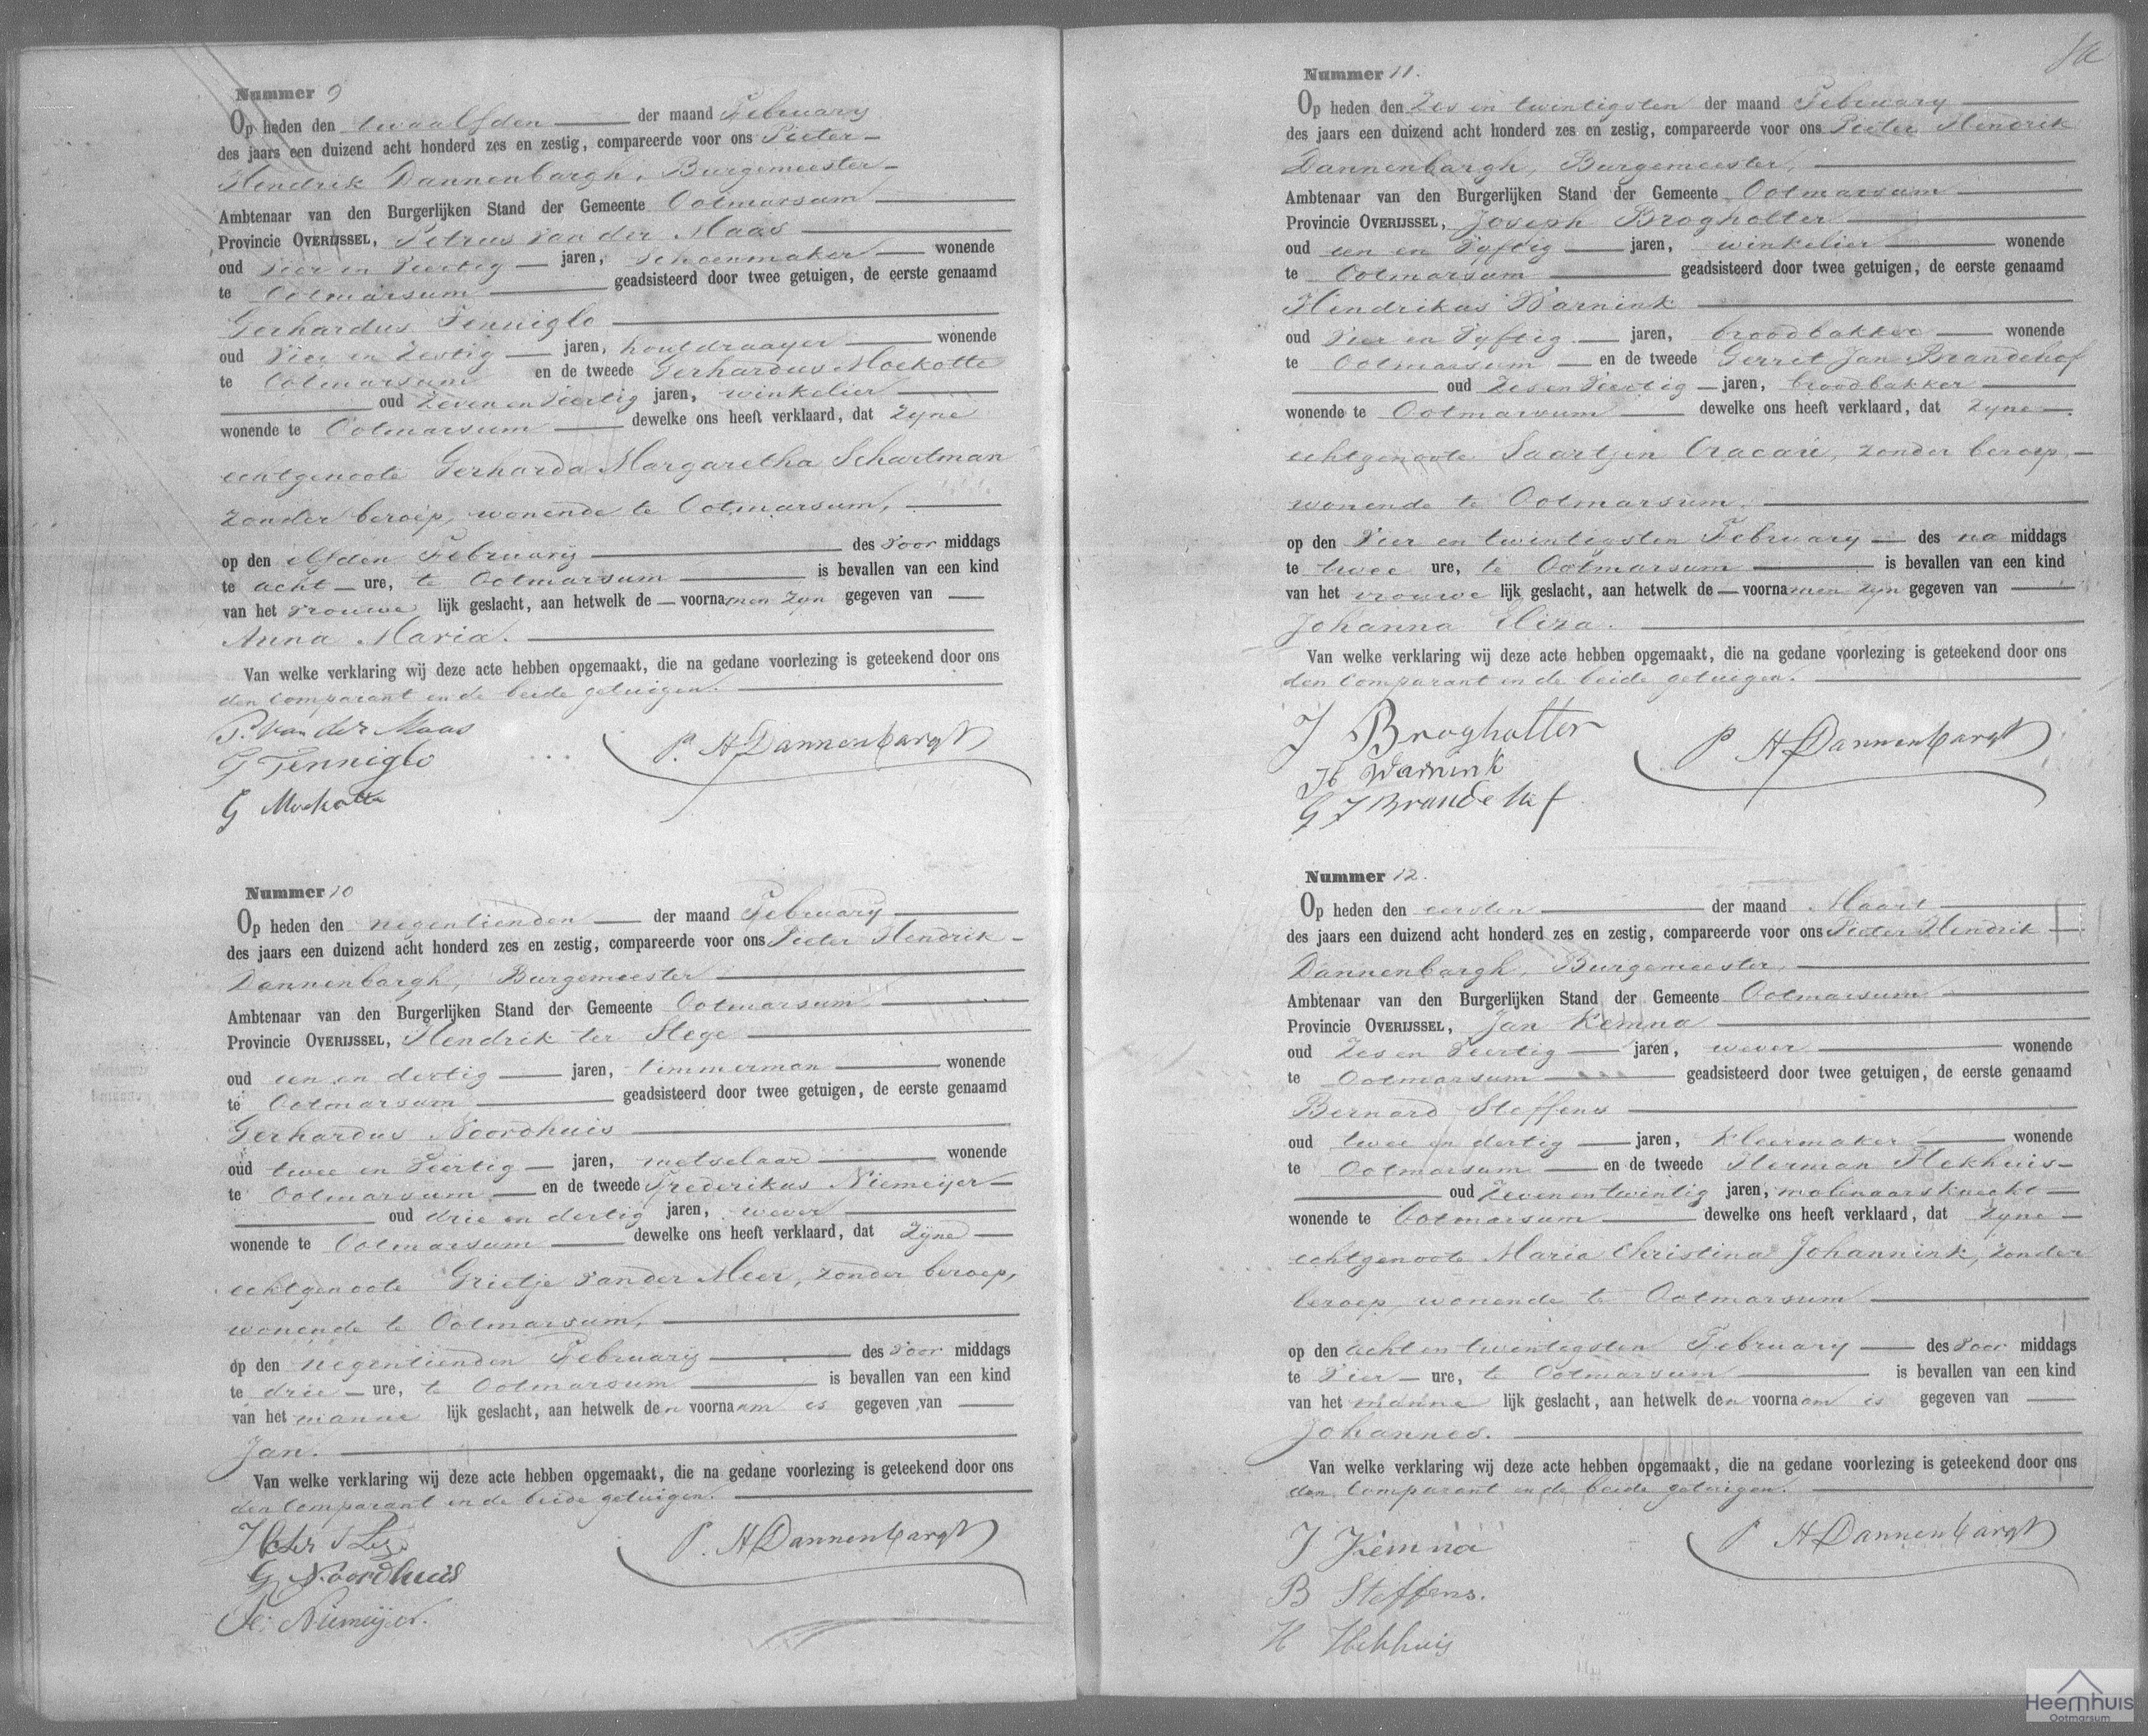 Nummer 9
Op heden den twaalfden der maand February
des jaars een duizend acht honderd zes en zestig, compareerde voor ons Pieter
Hendrik Dannenbargh, Burgemeester
Ambtenaar van den Burgerlijken Stand der Gemeente Ootmarsum
Provincie OVERIJSSEL, Petrus van der Maas
oud vier en veertig jaren, schoenmaker wonende
te Ootmarsum geadsisteerd door twee getuigen, de eerste genaamd
Gerhardus Tenniglo
oud vier en zestig jaren, houtdraayer wonende
te Ootmarsum en de tweede Gerhardus Mockotte
oud zeven en veertig jaren, winkelier
wonende te Ootmarsum dewelke ons heeft verklaard, dat zyne
echtgenoote Gerharda Margaretha Schartman
zonder beroep, wonende te Ootmarsum,
op den elfden February des voor middags
te acht ure, te Ootmarsum is bevallen van een kind
van het vrouwe lijk geslacht, aan hetwelk de voornamen zyn gegeven van
Anna Maria.
Van welke verklaring wij deze acte hebben opgemaakt, die na gedane voorlezing is geteekend door ons
den comparant en de beide getuigen.
P. van der Maas
P. H Dannenbargh
G Tenniglo
G Mockotte
Nummer 10
Op heden den negentienden der maand February
des jaars een duizend acht honderd zes en zestig, compareerde voor ons Pieter Hendrik
Dannenbargh, Burgemeester
Ambtenaar van den Burgerlijken Stand der Gemeente Ootmarsum
Provincie OVERIJSSEL, Hendrik ter Stege
oud een en dertig jaren, timmerman wonende
te Ootmarsum geadsisteerd door twee getuigen, de eerste genaamd
Gerhardus Noordhuis
oud twee en veertig jaren, metselaar wonende
te Ootmarsum en de tweede Frederikus Niemeijer
oud drie en dertig jaren, wever
wonende te Ootmarsum dewelke ons heeft verklaard, dat zyne
echtgenoote Grietje van der Meer, zonder beroep,
wonende te Ootmarsum,
op den negentienden February des voor middags
te drie ure, te Ootmarsum is bevallen van een kind
van het manne lijk geslacht, aan hetwelk den voornaam is gegeven van
Jan.
Van welke verklaring wij deze acte hebben opgemaakt, die na gedane voorlezing is geteekend door ons
den comparant en de beide getuigen.
H ter Stege
P. H Dannenbargh
G Noordhuis
Fr. Niemeijer.
Nummer 11.
Op heden den zes en twintigsten der maand February
des jaars een duizend acht honderd zes en zestig, compareerde voor ons Pieter Hendrik
Dannenbargh, Burgemeester,
Ambtenaar van den Burgerlijken Stand der Gemeente Ootmarsum
Provincie OVERIJSSEL, Joseph Brogholter
oud een en vyftig jaren, winkelier wonende
te Ootmarsum geadsisteerd door twee getuigen, de eerste genaamd
Hendrikus Warnink
oud vier en vyftig jaren, broodbakker wonende
te Ootmarsum en de tweede Gerret Jan Brandehof
oud zes en veertig jaren, broodbakker
wonende te Ootmarsum dewelke ons heeft verklaard, dat zyne
echtgenoote Saartjen zonder beroep,
wonende te Ootmarsum,
op den vier en twintigsten February des na middags
te twee ure, te Ootmarsum is bevallen van een kind
van het vrouwe lijk geslacht, aan hetwelk de voornamen zyn gegeven van
Johanna Eliza.
Van welke verklaring wij deze acte hebben opgemaakt, die na gedane voorlezing is geteekend door ons
den comparant en de beide getuigen.
J Brogholter
P H Dannenbargh
H Warnink
G J Brandehof
Nummer 12.
Op heden den eersten der maand Maart
des jaars een duizend acht honderd zes en zestig, compareerde voor ons Pieter Hendrik
Dannenbargh, Burgemeester,
Ambtenaar van den Burgerlijken Stand der Gemeente Ootmarsum
Provincie OVERIJSSEL, Jan Kemna
oud zes en veertig jaren, wever wonende
te Ootmarsum geadsisteerd door twee getuigen, de eerste genaamd
Bernard Steffens
oud twee en dertig jaren, kleermaker wonende
te Ootmarsum en de tweede Herman Hekhuis
oud zeven en twintig jaren, molenaarsknecht
wonende te Ootmarsum dewelke ons heeft verklaard, dat zyne
echtgenoote Maria Christina Johannink, zonder
beroep, wonende te Ootmarsum
op den acht en twintigsten February des voor middags
te vier ure, te Ootmarsum is bevallen van een kind
van het manne lijk geslacht, aan hetwelk den voornaam is gegeven van
Johannes.
Van welke verklaring wij deze acte hebben opgemaakt, die na gedane voorlezing is geteekend door ons
den comparant en de beide getuigen.
J Kemna
P H Dannenbargh
B Steffens.
H Hekhuis
Heemhuis
Ootmarsum